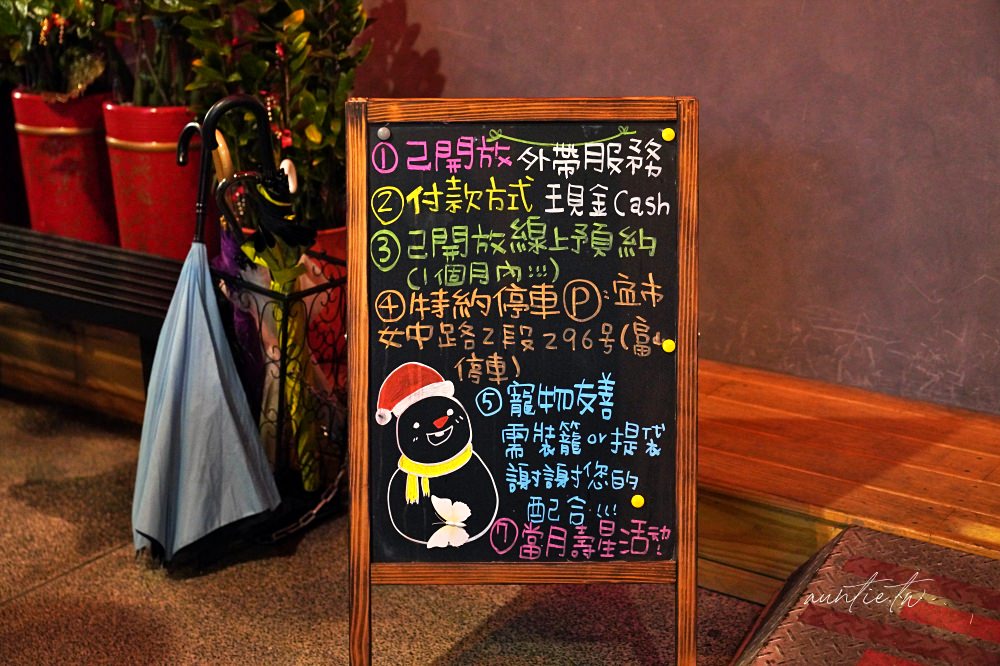 ①已開放 外帶服務
②付款方式 現金Cash
③已開放線上預約
(1個月內!!!)
④特約停車Ⓟ:宜市
女中路2段296号(富山
停車)
⑤寵物友善
需裝籠or提袋
謝謝您的
配合!!!
⑦當月壽星活动!
auntie.tw